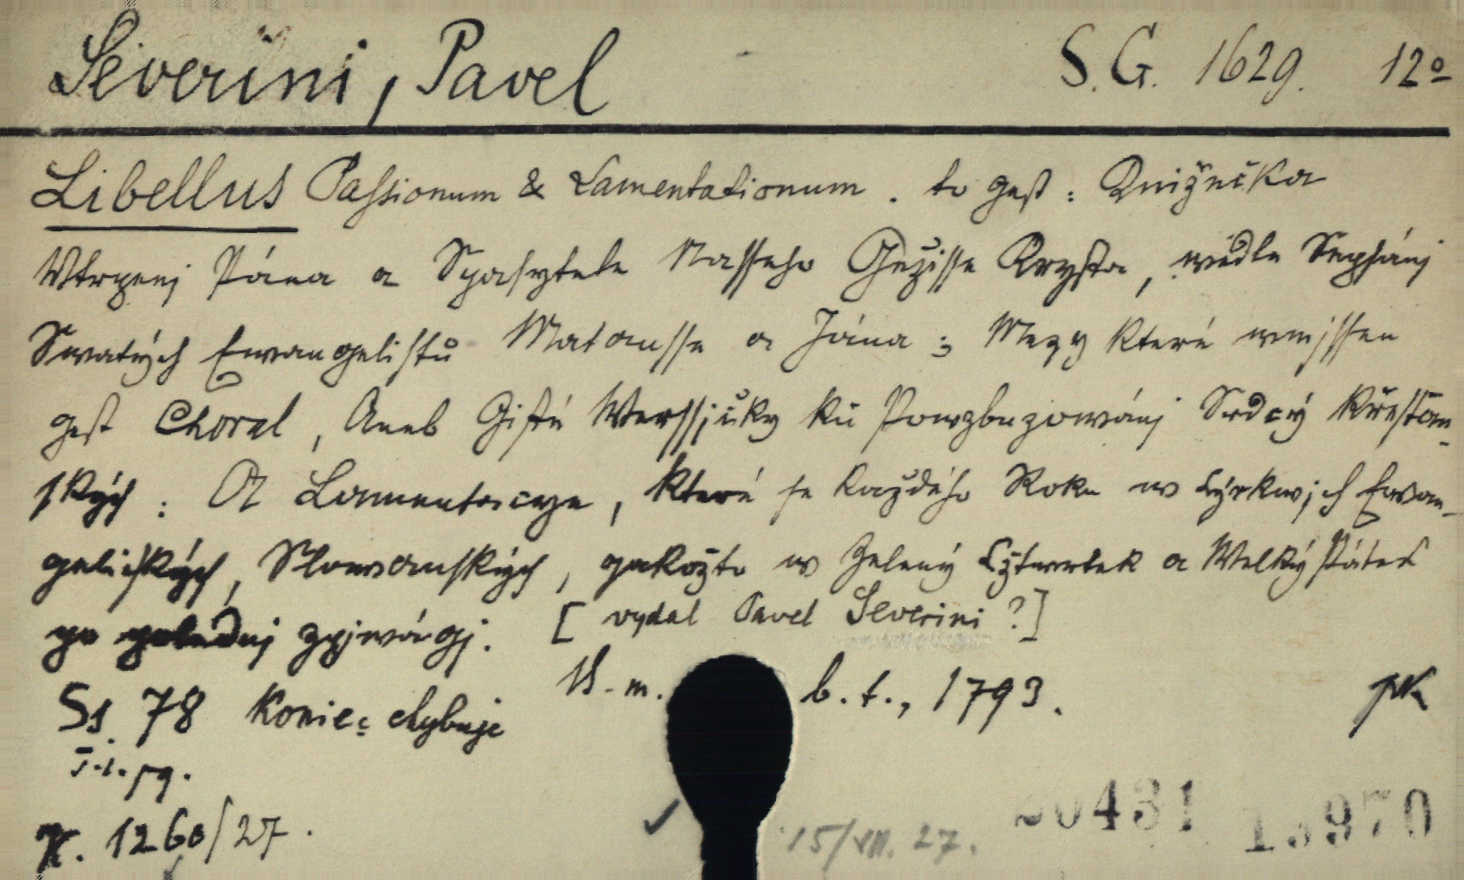 Severini, Pavel S.G. 1629. 12º
Libellus Passionum & Lamentationum. to gest: Knižnička
Vtrpenj Pána a Spasytele Nasseho Gežisse Krysta, wedle Sepsánj
Swatých Ewangelistů Matausse a Jána; Mezy které wmjssen
gest Choral, Aneb Gisté Werssjčky ku Powzbuzowánj Srdcý Křestan-
ských: A Lamentacye, které se každého Roku w Cýrkwjch Ewan-
gelických, Slowanských, gakožto w Zelený Cžtwrtek a Welký Pátek
po polednj zpjwágj. [vydal Pavel Severini?]
Ss 78 Koniec chybuje B.m. b.t., 1793.
K. 1260/27.
15/VII. 27. 20431 13970